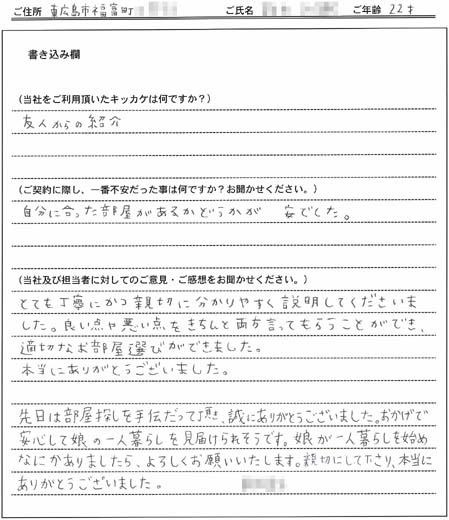 ご住所 東広島市福富町 ご氏名 ご年齢 22才
書き込み欄
(当社をご利用頂いたキッカケは何ですか?)
友人からの紹介
(ご契約に際し、一番不安だった事は何ですか?お聞かせください。)
自分に合った部屋があるかどうかが 安でした。
(当社及び担当者に対してのご意見・ご感想をお聞かせください。)
とても丁寧にかつ親切に分かりやすく説明してくださいま
した。良い点や悪い点をきちんと両方言ってもらうことができ、
適切なお部屋選びができました。
本当にありがとうございました。
先日は部屋探しを手伝だって頂き、誠にありがとうございました。おかげで
安心して娘の一人暮らしを見届けられそうです。娘が一人暮らしを始め
なにかありましたら、よろしくお願いいたします。親切にして下さり、本当に
ありがとうございました。